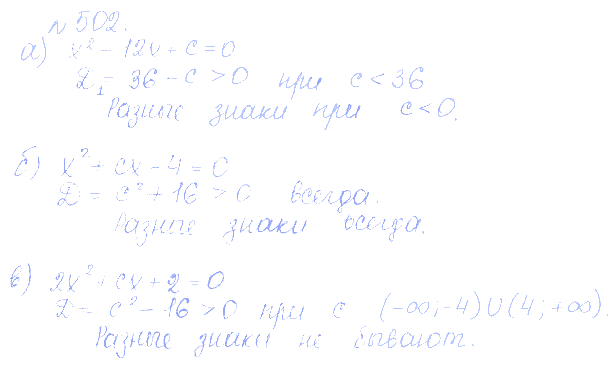 № 502.
а) x² - 12x + c = 0
Д₁ = 36 - c > 0 при c < 36
Разные знаки при c < 0.
б) x² + cx - 4 = 0
Д = c² + 16 > 0 всегда.
Разные знаки всегда.
в) 2x² + cx + 2 = 0
Д = c² - 16 > 0 при c (-∞; -4) ∪ (4; +∞).
Разные знаки не бывают.